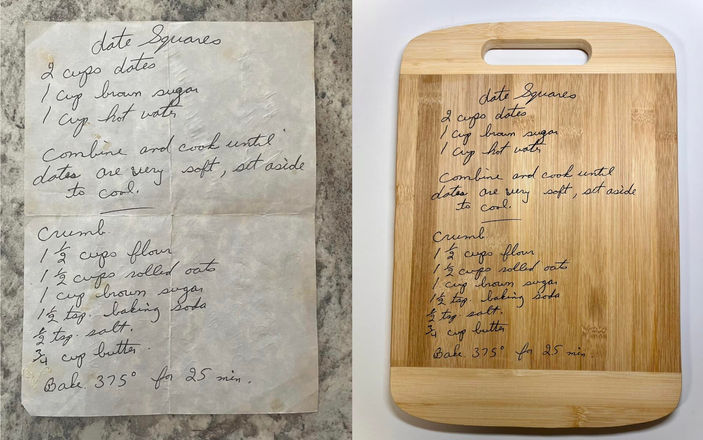 Date Squares
2 cups dates
1 cup brown sugar
1 cup hot water
Combine and cook until
dates are very soft, set aside
to cool.
Crumb
1 1/2 cups flour
1 1/2 cups rolled oats
1 cup brown sugar
1 1/2 tsp. baking soda
1/2 tsp. salt.
3/4 cup butter.
Bake 375° for 25 min.
Date Squares
2 cups dates
1 cup brown sugar
1 cup hot water
Combine and cook until
dates are very soft, set aside
to cool.
Crumb
1 1/2 cups flour
1 1/2 cups rolled oats
1 cup brown sugar
1 1/2 tsp. baking soda
1/2 tsp. salt.
3/4 cup butter
Bake 375° for 25 min.